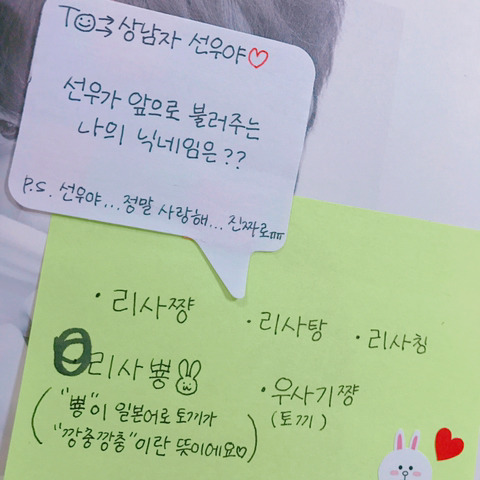 TO→상남자 선우야♡
선우가 앞으로 불러주는
나의 닉네임은??
P.S. 선우야...정말 사랑해... 진짜로ㅠㅠ
· 리사쨩
· 리사탕
· 리사칭
· 리사뿅
("뿅"이 일본어로 토끼가
"깡충깡충"이란 뜻이에요♡)
· 우사기쨩
(토끼)